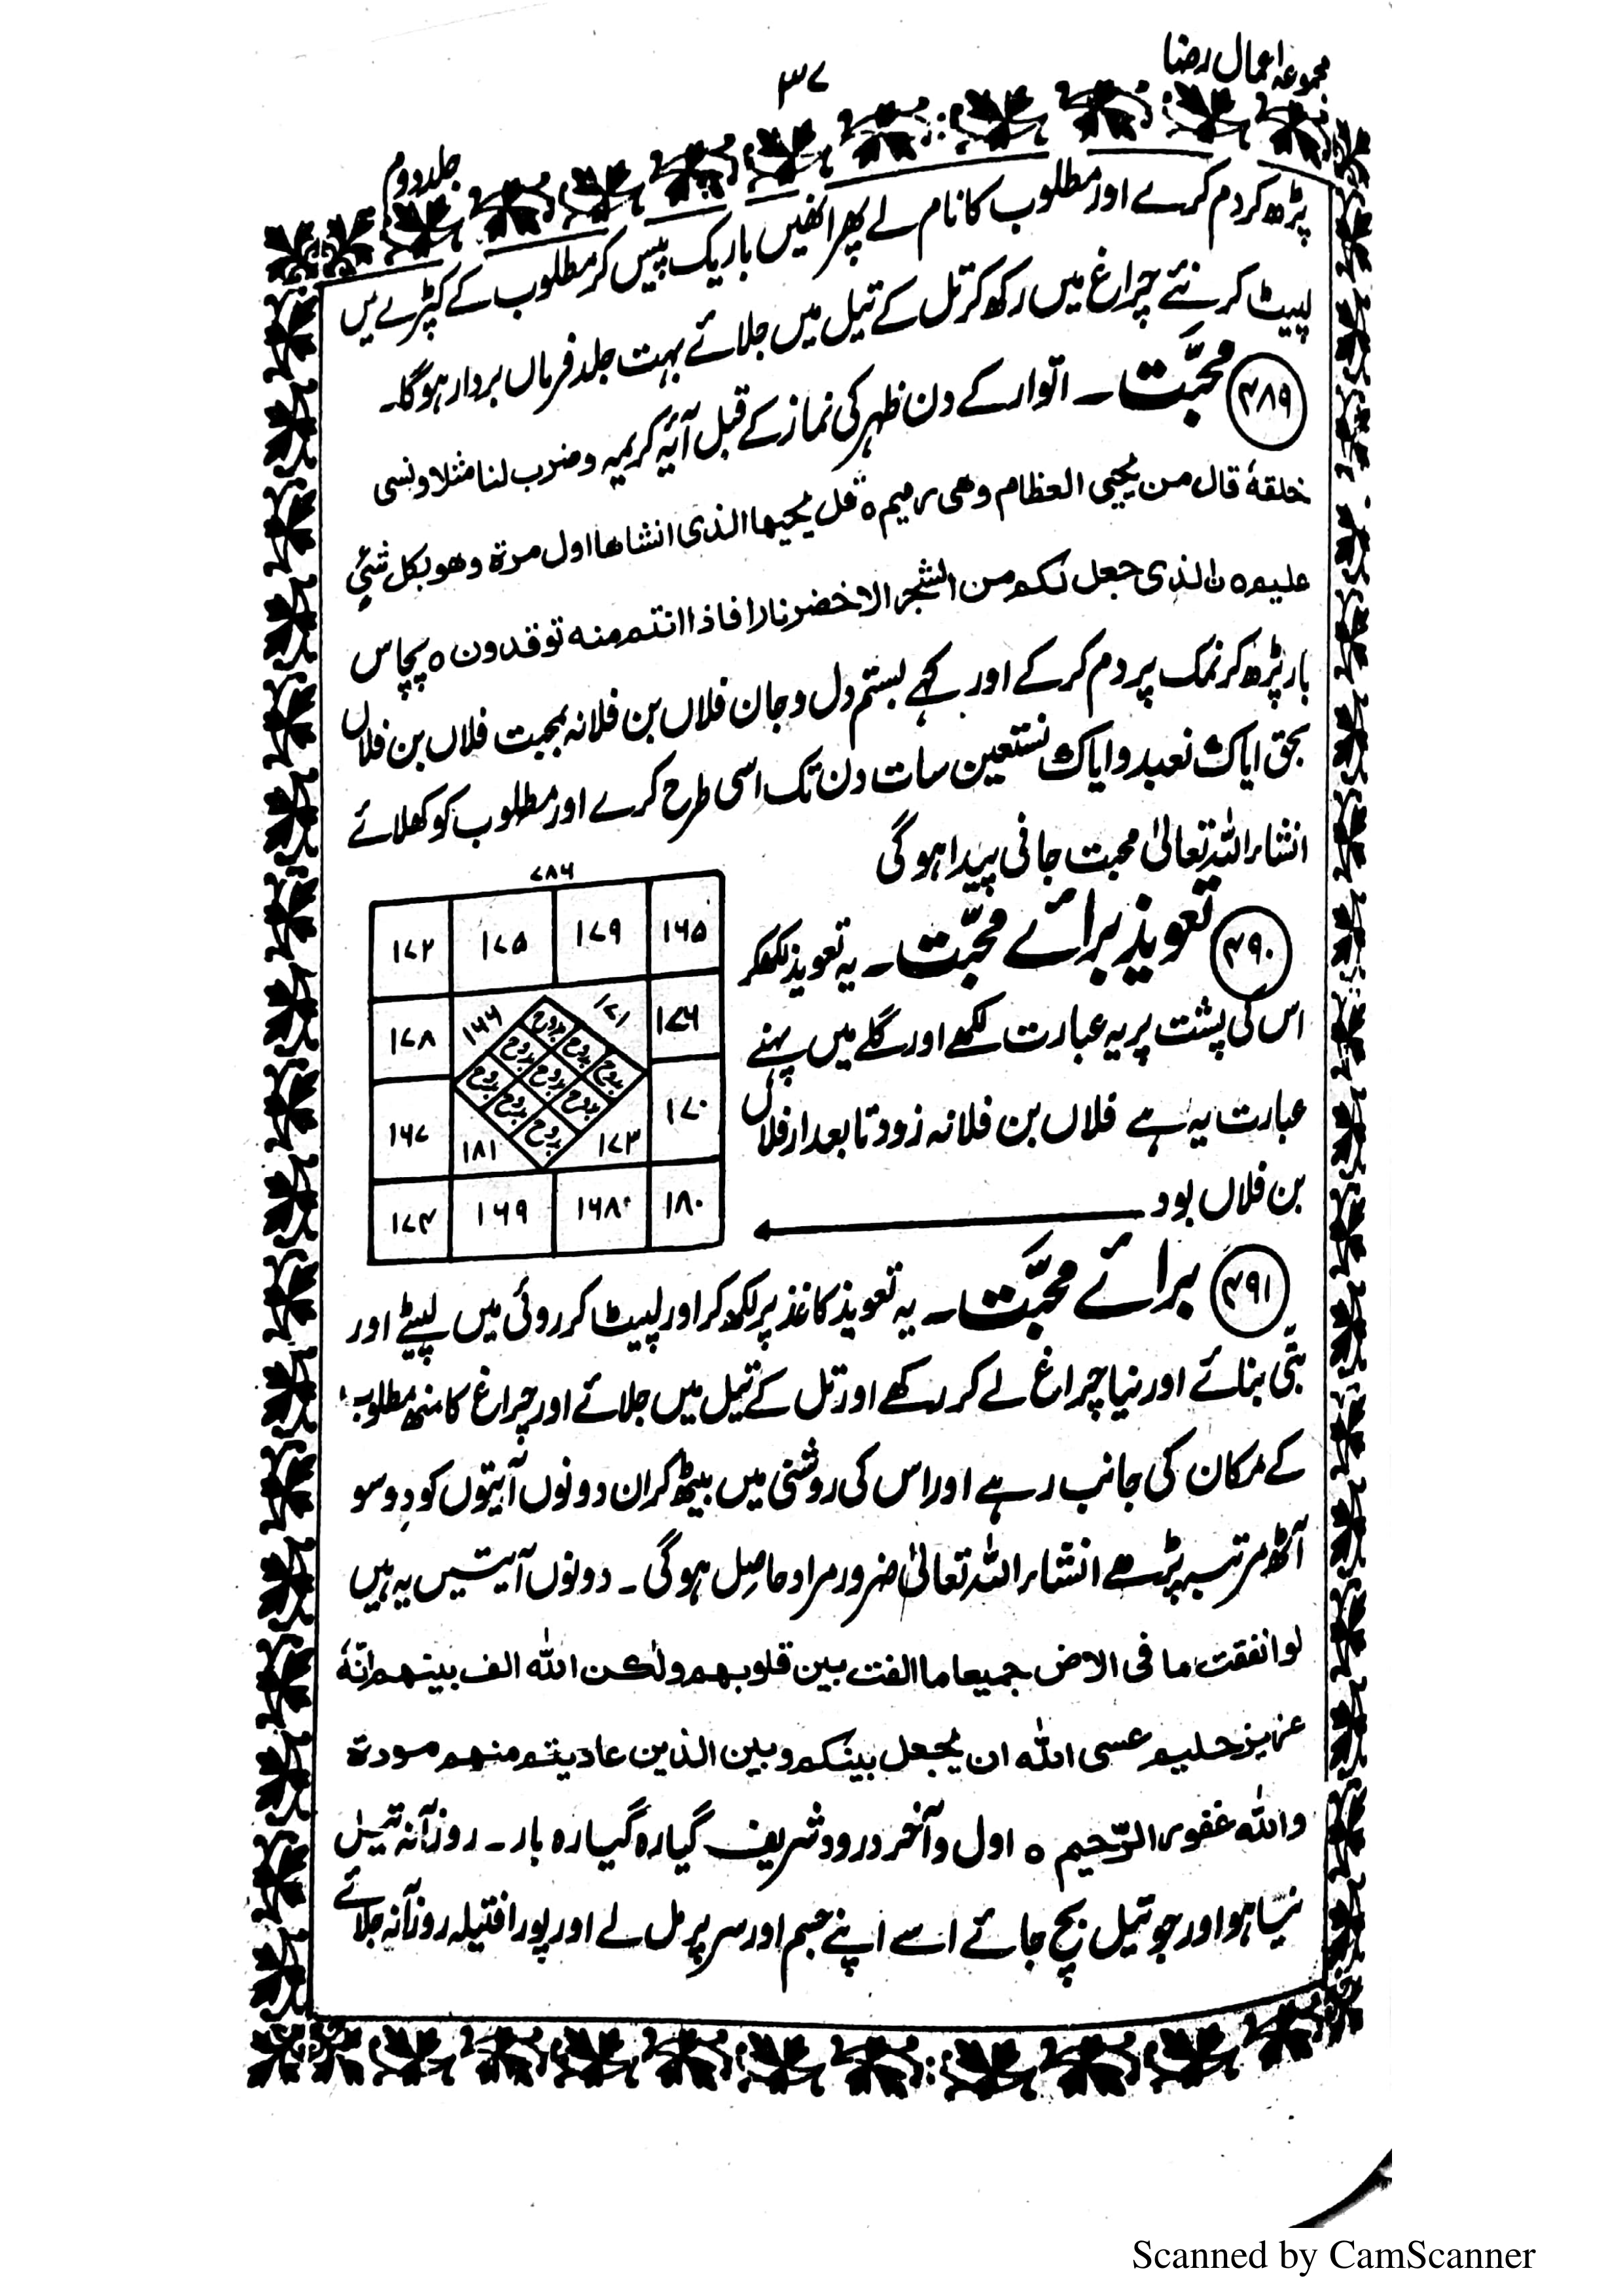 مجموعہ اعمال رضا
۳۷
جلد دوم
پڑھ کر دم کرے اور مطلوب کا نام لے پھر انھیں باریک پیس کر مطلوب کے کپڑے میں
لپیٹ کر نئے چراغ میں رکھ کر تل کے تیل میں جلائے بہت جلد فرماں بردار ہوگا۔
۴۸۹ محبّت۔ اتوار کے دن ظہر کی نماز کے قبل آیۂ کریمہ وضرب لنا مثلا ونسی
خلقهٗ قال من یحیی العظام وھی رمیم ہ قل یحییھا الذی انشاھا اول مرۃ وھو بکل شئیٍ
علیم ہ ن الذی جعل لکم من الشجر الاخضر نارا فاذا انتم منه توقدون ہ پچاس
بار پڑھ کر نمک پر دم کر کے اور کہے بستم دل و جان فلاں بن فلانہ بمحبت فلاں بن فلاں
بحق ایاک نعبد وایاک نستعین سات دن تک اسی طرح کرے اور مطلوب کو کھلائے
انشاء اللہ تعالیٰ محبت جانی پیدا ہوگی
۴۹۰ تعویذ برائے محبّت۔ یہ تعویذ لکھ کر
اس کی پشت پر یہ عبارت لکھے اور گلے میں پہنے
عبارت یہ ہے فلاں بن فلانہ زود تابعدار فلاں
بن فلاں بود
۷۸۶
۱۷۲ ۱۷۵ ۱۷۹ ۱۶۵
۱۷۸ ۱۶۶ ۱۷۱ ۱۷۶
بدوح
بدوح بدوح
بدوح بدوح بدوح
بدوح بدوح
بدوح
۱۶۷ ۱۸۱ ۱۷۳ ۱۷۰
۱۷۴ ۱۶۹ ۱۶۸ ۱۸۰
۴۹۱ برائے محبّت۔ یہ تعویذ کاغذ پر لکھ کر اور لپیٹ کر روئی میں لپیٹے اور
بتّی بنائے اور نیا چراغ لے کر رکھے اور تل کے تیل میں جلائے اور چراغ کا منھ مطلوب
کے مکان کی جانب رہے اور اس کی روشنی میں بیٹھ کر ان دونوں آیتوں کو دو سو
آٹھ مرتبہ پڑھے انشاء اللہ تعالیٰ ضرور مراد حاصل ہوگی۔ دونوں آیتیں یہ ہیں
لو انفقت ما فی الارض جمیعا ما الفت بین قلوبھم ولٰکن اللہ الف بینھم انّهٗ
عزیز حلیم عسی اللہ ان یجعل بینکم وبین الذین عادیتم منھم مودۃ
واللہ غفور الرّحیم ہ اول و آخر درود شریف گیارہ گیارہ بار۔ روزآنہ تیل
نیا ہو اور جو تیل بچ جائے اسے اپنے جسم اور سر پر مل لے اور پورا فتیلہ روزآنہ جلائے
Scanned by CamScanner